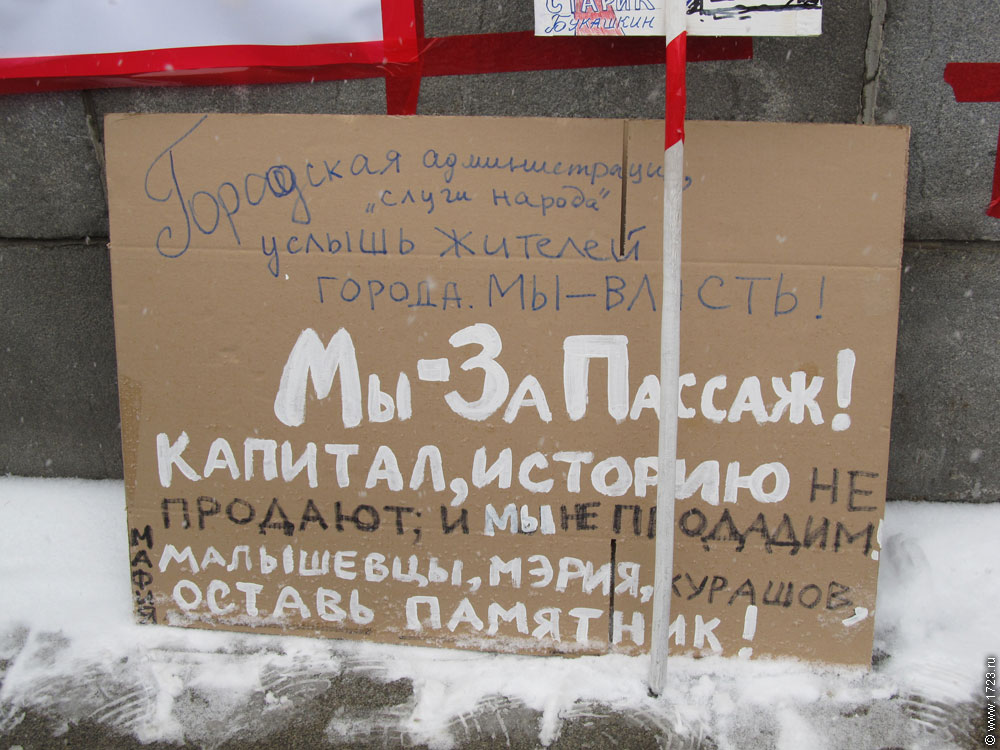 СТАРИК
БУКАШКИН
Городская администрация,
„слуги народа"
услышь жителей
города. Мы – власть!
Мы - За Пассаж!
Капитал, историю не
продают; и мы не продадим!
Мафия
Малышевцы, мэрия, Курашов,
оставь памятник!
© www.1723.ru